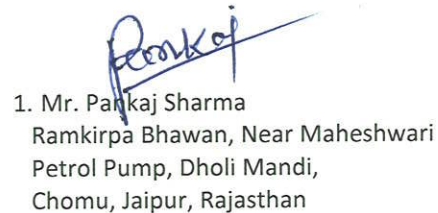 Pankaj
1. Mr. Pankaj Sharma
Ramkirpa Bhawan, Near Maheshwari
Petrol Pump, Dholi Mandi,
Chomu, Jaipur, Rajasthan